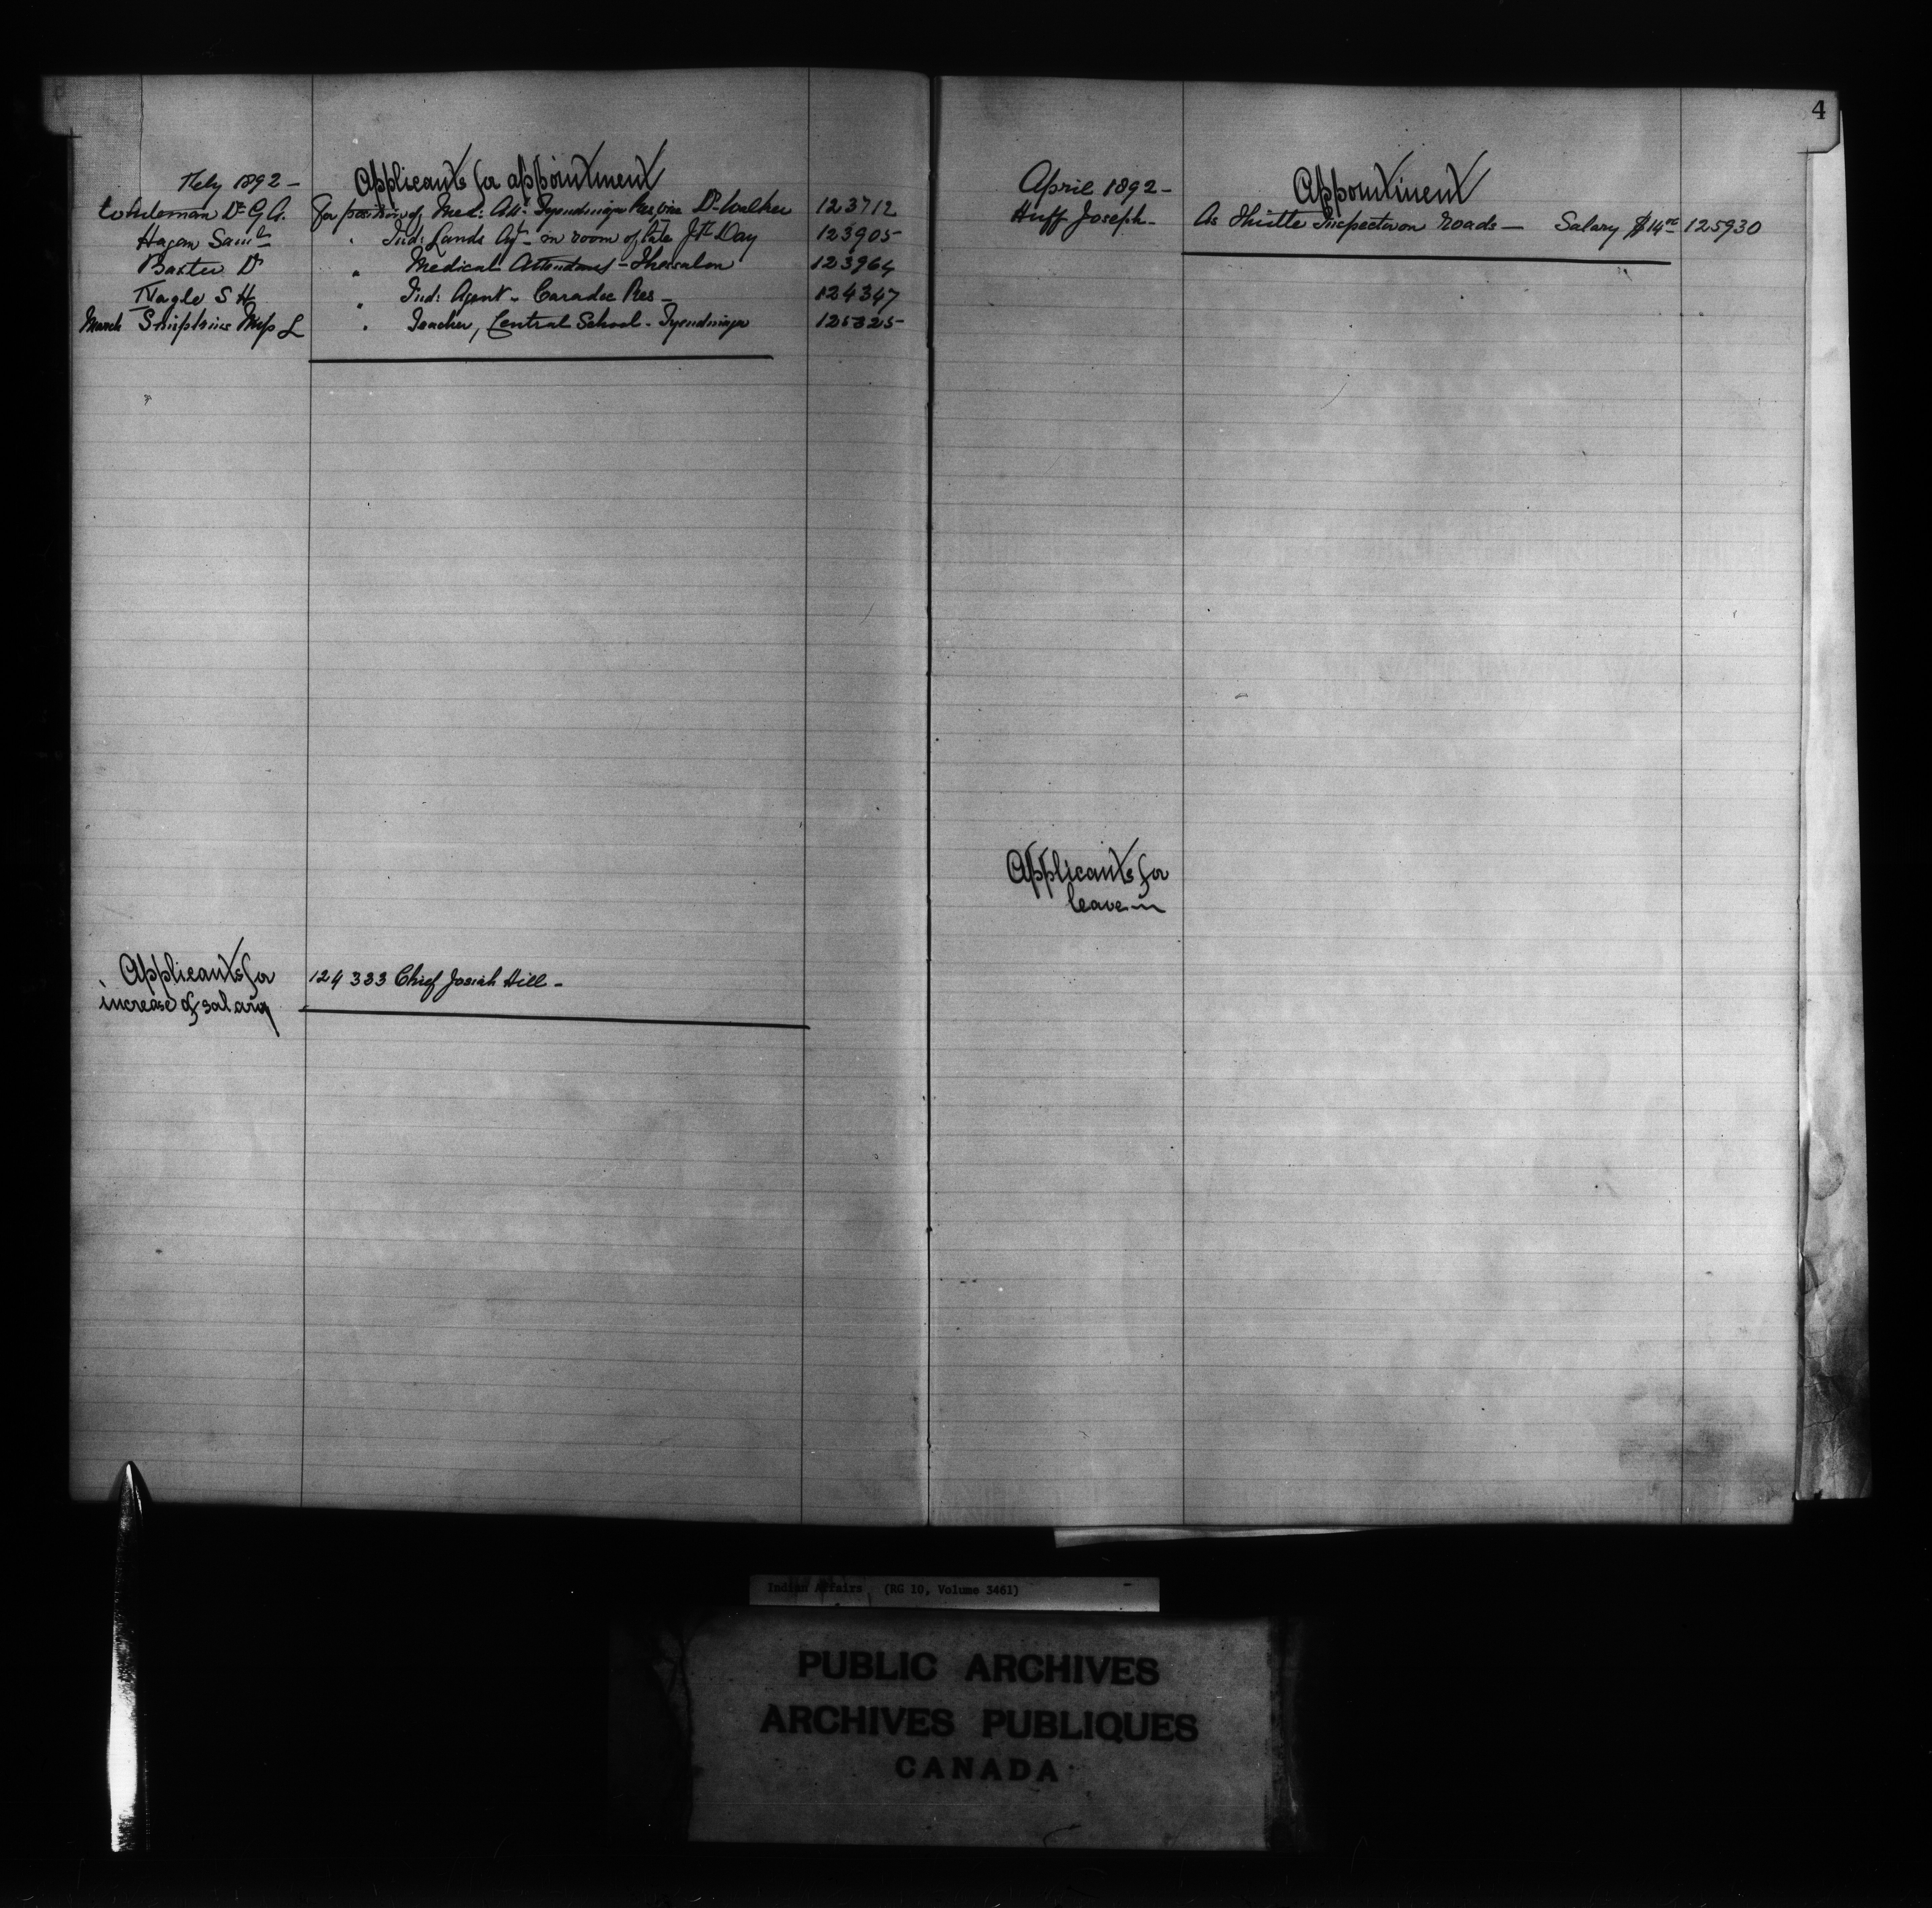 Feby 1892 -
Applicants for appointment
Whiteman Dr G. A. for position of Med: Att: Tyendinaga Res vice Dr Walker 123712
Hagan Saml " Ind: Lands Agt - in room of late Jth Day 123905
Baxter Dr " Medical Attendant - Thessalon 123964
Nagle S H " Ind: Agent - Caradoc Res - 124347
March Miss L " Teacher, Central School - Tyendinaga 125325
Applicants for
increase of salary
124 333 Chief Josiah Hill -
4
April 1892 -
Appointment
Huff Joseph - As Thistle Inspector on roads - Salary $14 00 125930
Applicants for
leave
Indian Affairs (RG 10, Volume 3461)
PUBLIC ARCHIVES
ARCHIVES PUBLIQUES
CANADA